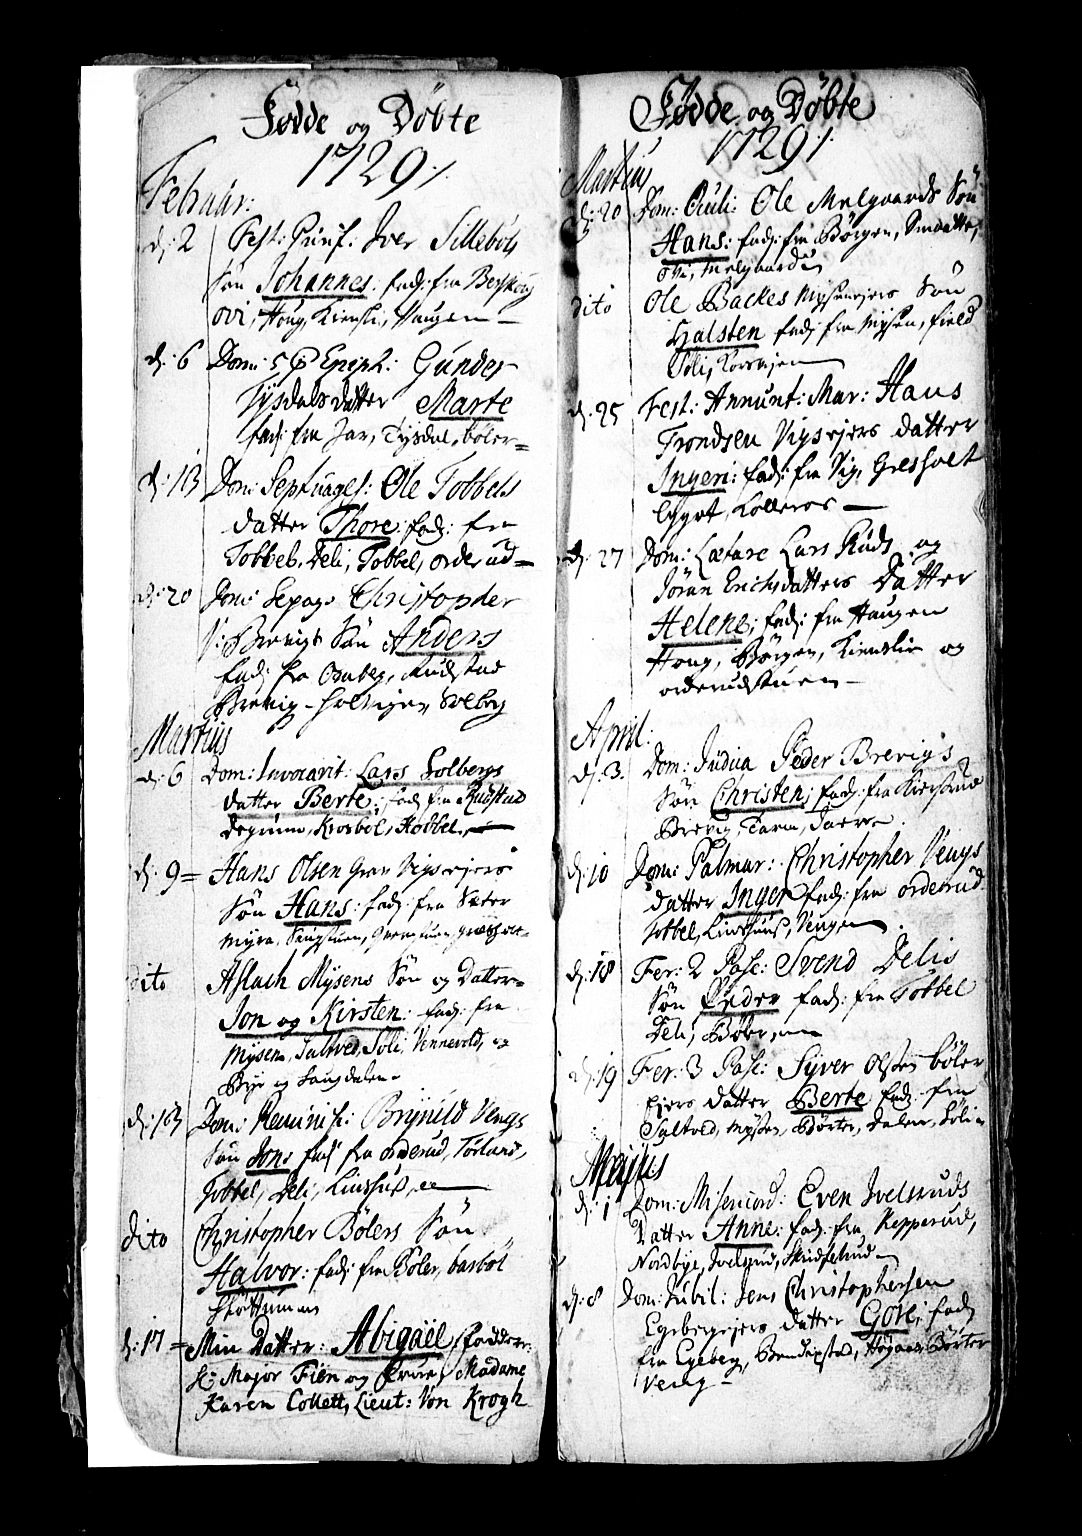 Fødde og Døbte
1729 ⁒
Februar:
d: 2 Fest: Purif: Iver Sillebøls
Søn Johannes: fad: fra Berskoug
ovi, Houg, Kienslie, Haugen —
d: 6 Dom: 5 p Epiph: Gunder
Tysdals datter Marte
fad: fra Jar, Tysdal, bøler =
d: 13 Dom: Septuages: Ole Tobbels
datter Thore: fad: fra
Tobbel, Deli, Tobbel, orderud —
d: 20 Dom: Sexages Christopher
Brevigs Søn Anders
fad: fra Rudstad
Brevig Solberg
Martius
d: 6 Dom: Invocavit: Lars Solbergs
datter Berte: fad: fra Rudstad
Degrum, Krosbøl, Hobbel. —
d: 9 = Hans Olsen Gran Vigs ejers
Søn Hans: fad: fra Sæter
myra,
dito Aslach Mysens Søn og Datter =
Jon og Kirsten: fad: fra
Mysen, Saltved, Soli, Vennevold,
Bye og Langdalen
d: 13 Dom: Reminis: Brynild Vengs
Søn Jons fad: fra orderud, Torland,
Tobbel, Deli, Linshus,
dito Christopher Bølers Søn
Halvor: fad: fra Bøler, barbøl
Skottumen
d: 17 = Min Datter: Abigaël faddere:
Hr: Major Fien og Frue, Madame
Karen Collett, Lieut: Von Krogh
Fødde og Døbte
1729 ⁒
Martius
d: 20 Dom: Oculi: Ole Melgaards Søn
Hans: fad: fra Børgen,
ovi, Melgaard
dito Ole Backes Mysenejers Søn
Halsten fad: fra Mysen, field
Soli,
d: 25 Fest: Annunt: Mar: Hans
Trondsen Vigs ejers datter
Ingeri: fad: fra Vig, Gresholt
Lyget, Kolleros —
d: 27 Dom: Lætare Lars Ruds og
Jøran Erichsdatters Datter
Helene; fad: fra Haugen
Houg, Børgen, Kienslie og
orderudstuen —
April:
d: 3. Dom: Judica Peder Brevig's
Søn Christen; fad: fra Kierstad
Brevig, Tarm, Jaeren.
d: 10 Dom: Palmar: Christopher Vengs
datter Inger fad: fra orderud
Tobbel, Linshuus, Vengen.
d: 18 Fer: 2 Pasc: Svend Delis
Søn Peder fad: fra Tobbel
Deli,
d: 19 Fer: 3 Pasc: Syver Olsen bøler
Ejers datter Berte fad: fra
Saltvod, Mysen, Børter, Dalen, Soli =
Majus
d: 1 Dom: Misericord: Even Ivelsruds
Datter Anne: fad: fra Kepperud,
Nordbye, Ivelsrud, Skudselrud —
d: 8 Dom: Jubil: Jens Christophersen
Egebergejers datter Gore; fad:
fra Egeberg, Bendigstad, Høgaas Børter
Veng —